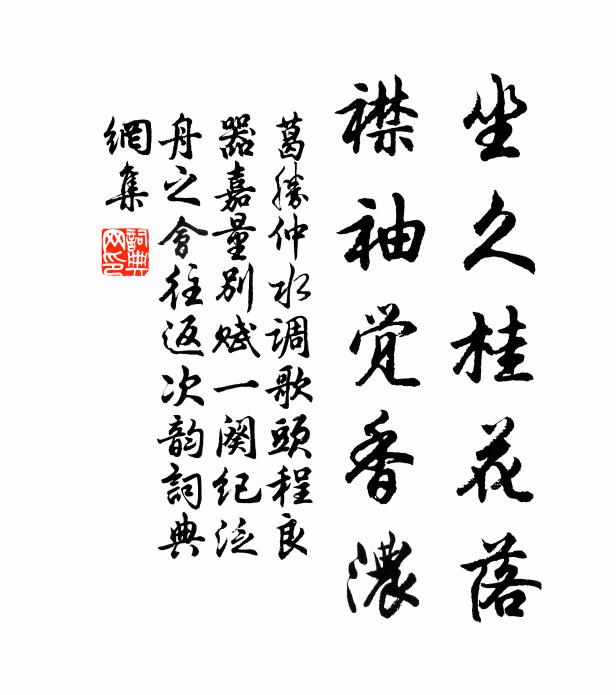 坐久桂花落
襟袖觉香濃
葛勝仲水调歌頭程良
器嘉量别赋一阕纪泛
舟之會往返次韵詞典
網集
詞典网印